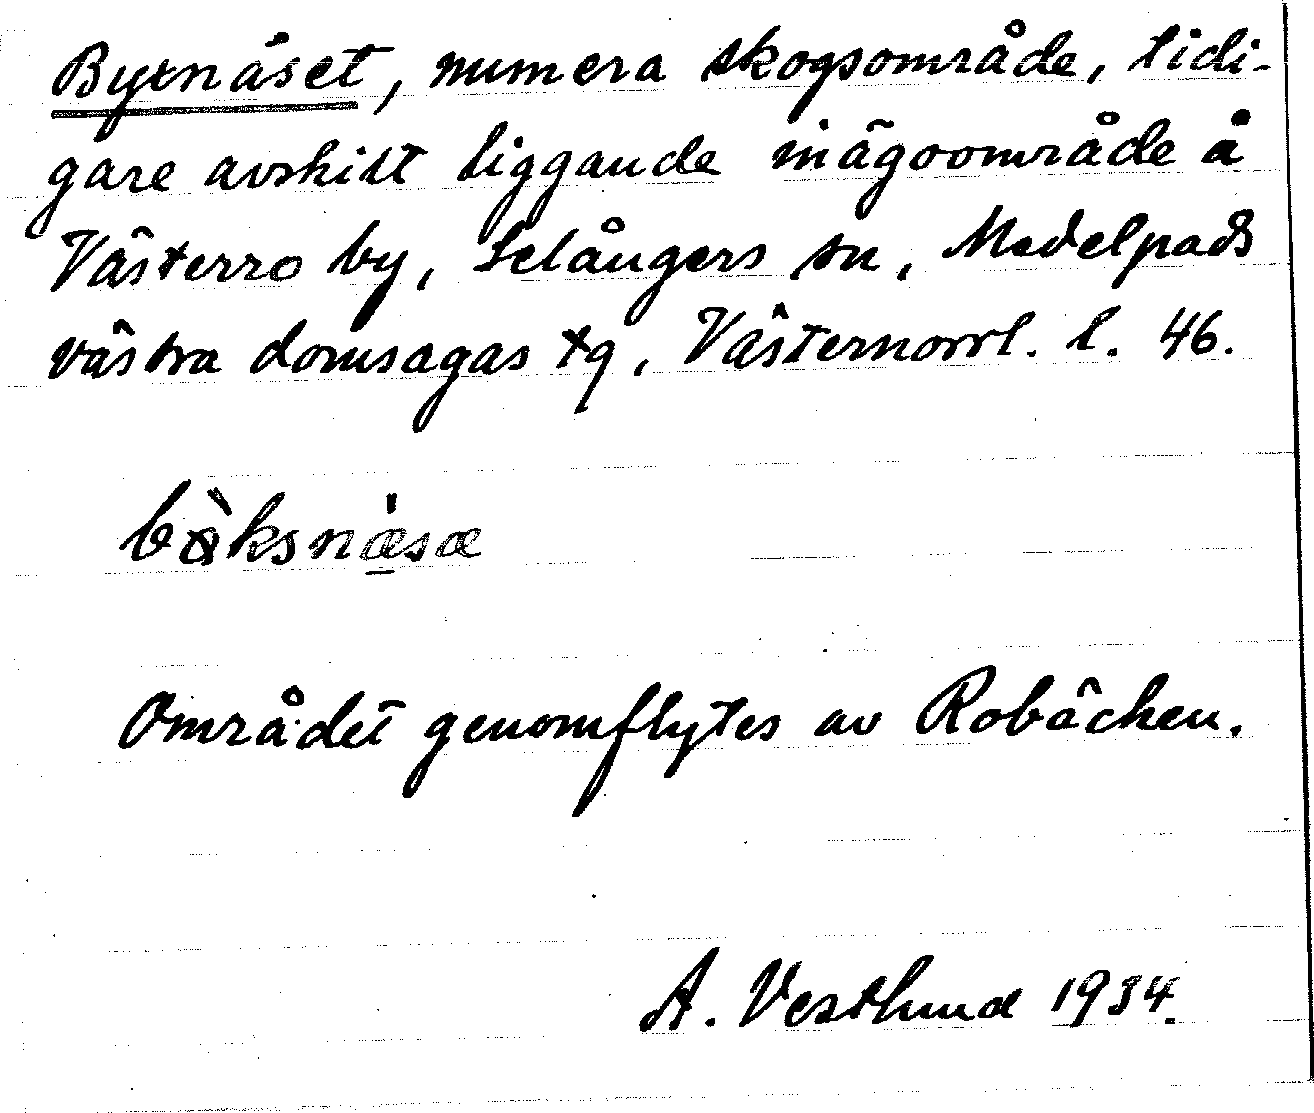 Byxnäset, numera skogsområde, tidi-
gare avskilt liggande inägoområde å
Västerro by, Selångers sn, Medelpads
västra domsagas tg, Västernorrl. l. 46.
Området genomflytes av Robäcken.
A. Vestlund 1934.